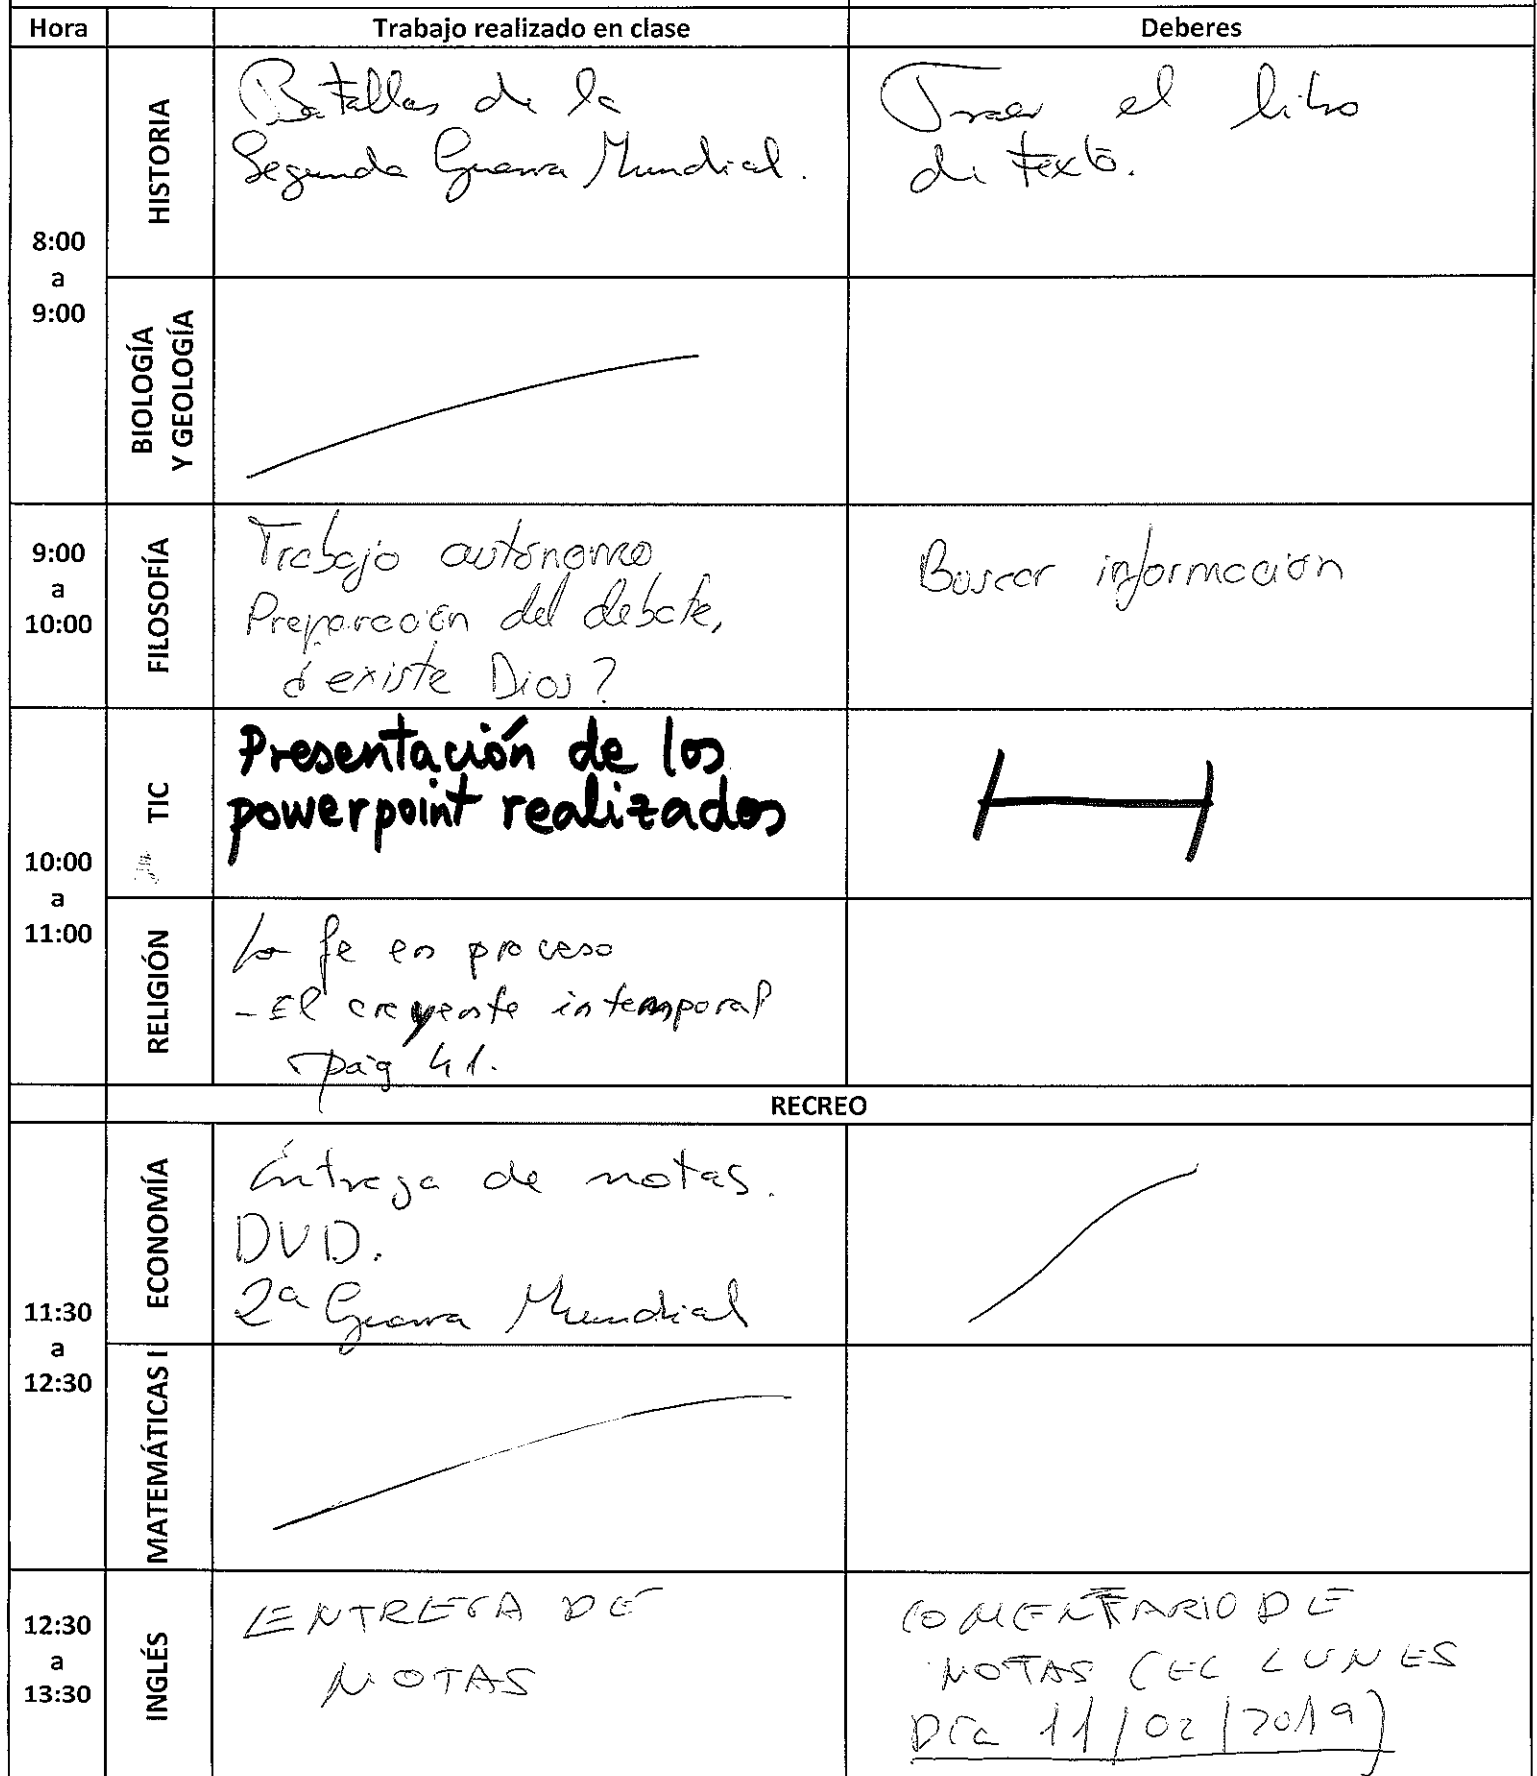 Hora Trabajo realizado en clase Deberes
8:00
a
9:00
HISTORIA
Batallas de la
Segunda Guerra Mundial.
Traer el libro
de texto.
BIOLOGÍA
Y GEOLOGÍA
9:00
a
10:00
FILOSOFÍA
Trabajo autónomo
Preparación del debate,
¿existe Dios?
Buscar información
10:00
a
11:00
TIC
Presentación de los
powerpoint realizados
RELIGIÓN
La fe en proceso
- El creyente intemporal
pág 41.
RECREO
11:30
a
12:30
ECONOMÍA
Entrega de notas.
DVD.
2ª Guerra Mundial
MATEMÁTICAS I
12:30
a
13:30
INGLÉS
ENTREGA DE
NOTAS
COMENTARIO DE
NOTAS (EL LUNES
DÍA 11/02/2019)